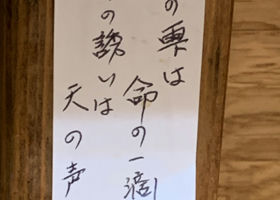 の雫は
命の一滴
の誘いは
天の声